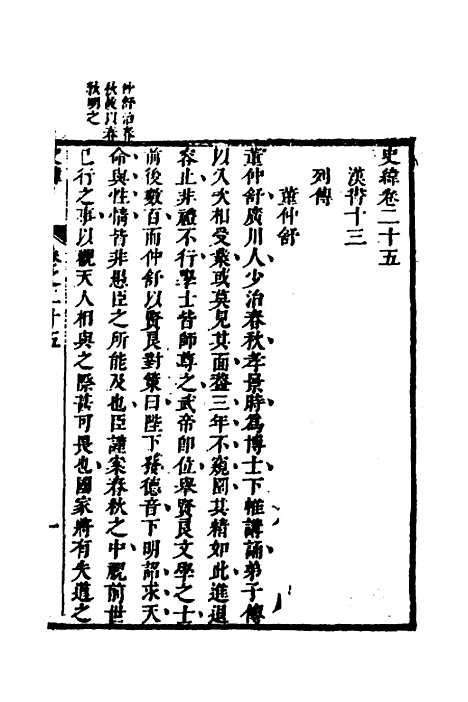 仲舒治春
秋故以春
秋明之
史緯卷二十五
漢書十三
列傳
董仲舒
董仲舒廣川人少治春秋孝景時爲博士下帷講誦弟子傳
以久次相受業或莫見其面蓋三年不窺園其精如此進退
容止非禮不行學士皆師尊之武帝卽位舉賢良文學之士
前後數百而仲舒以賢良對策曰陛下發德音下明詔求天
命與性情皆非愚臣之所能及也臣謹案春秋之中視前世
已行之事以觀天人相與之際甚可畏也國家將有失道之
史緯
卷之二十五
一